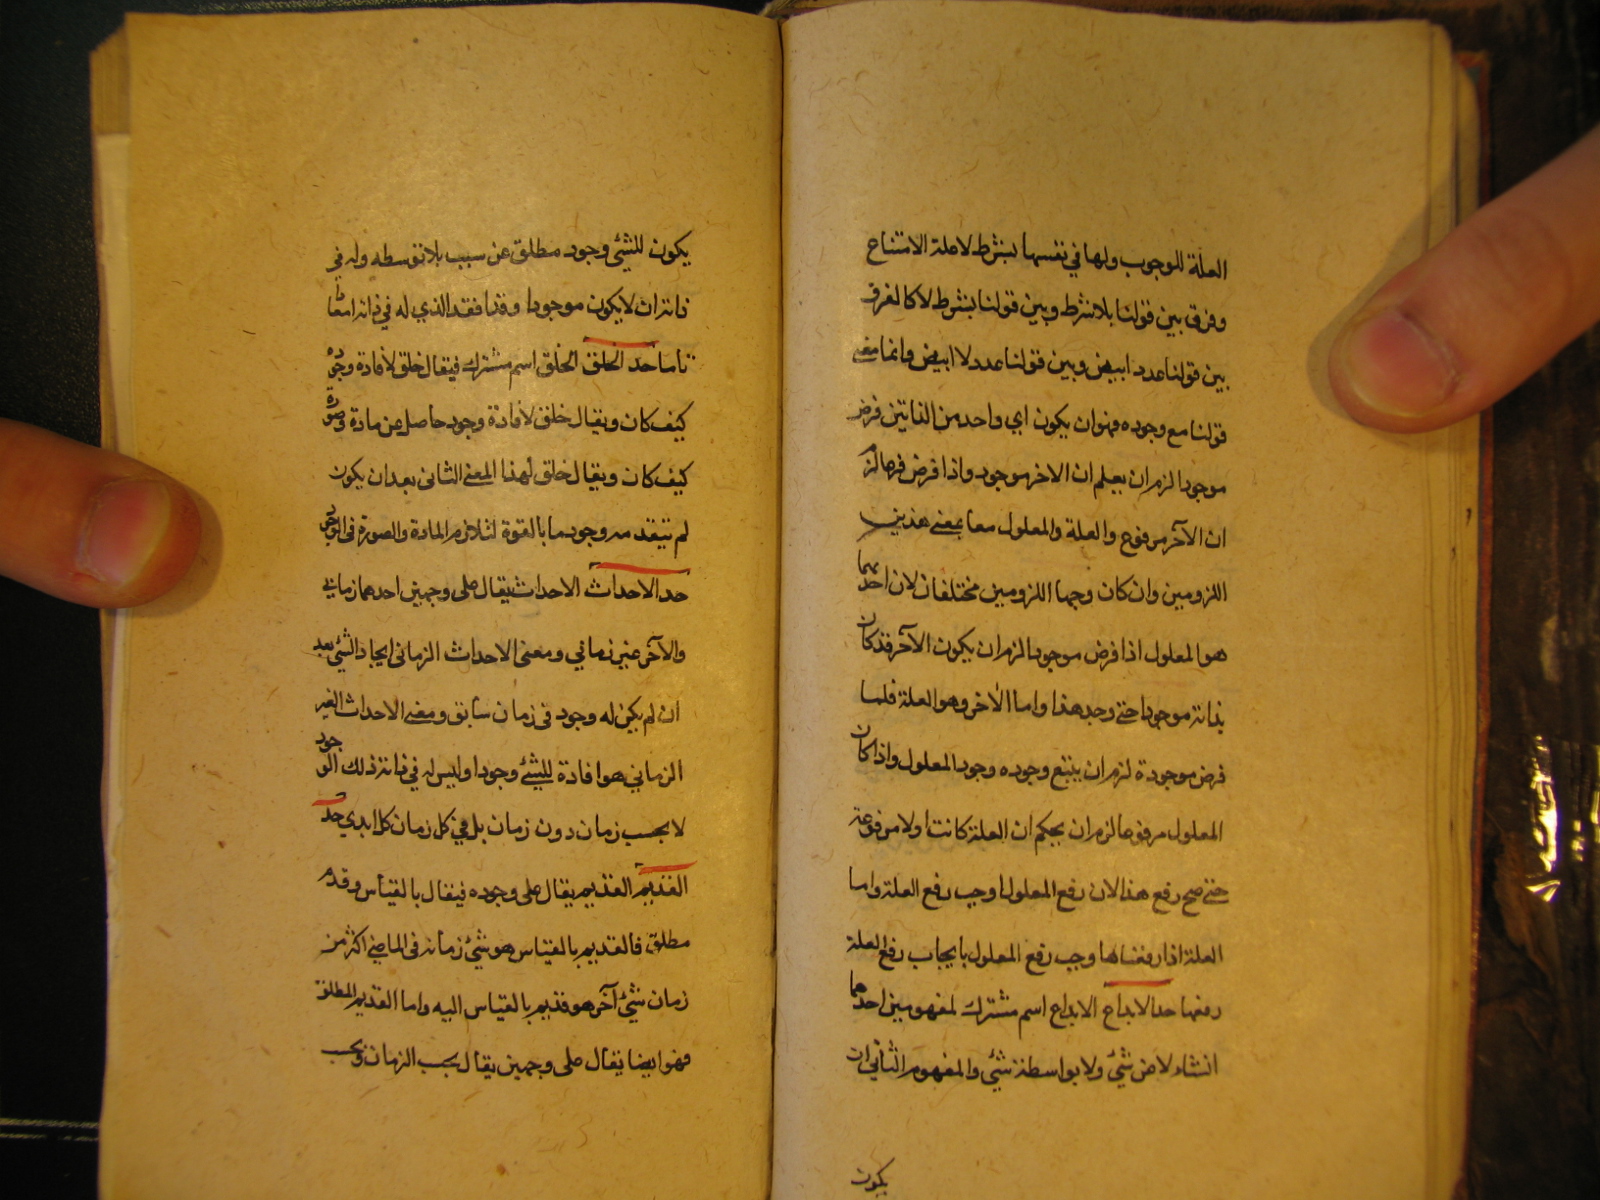 العلة للوجوب ولها في نفسها بشرط لاعلة الامتناع
وفرق بين قولنا بلا شرط وبين قولنا بشرط لا كالفرق
بين قولنا عدد ابيض وبين قولنا عدد لا ابيض وانما معنى
قولنا مع وجوده فهوان يكون اي واحد من الذاتين فرض
موجودا لزم ان يعلم ان الاخر موجود واذا فرض مرفوعا لزم
ان الآخر مرفوع والعلة والمعلول معا بمعنى هذين
اللزومين وان كان وجها اللزومين مختلفان لان احدهما
هو المعلول اذا فرض موجودا لزم ان يكون الآخر قد كان
بذاته موجودا حتى وجد هذا واما الآخر وهو العلة فلما
فرض موجودة لزم ان يتبع وجوده وجود المعلول واذا كان
المعلول مرفوعا لزم ان يحكم ان العلة كانت اولا مرفوعة
حتى صح رفع هذا لان رفع المعلول اوجب رفع العلة واما
العلة اذا رفعناها وجب رفع المعلول بايجاب رفع العلة
رفعها حد الابداع الابداع اسم مشترك لمفهومين احدهما
انشاء لا من شئ ولا بواسطة شئ والمفهوم الثاني ان
يكون
يكون للشئ وجود مطلق عن سبب بلا توسطه وله في
ذاته ان لا يكون موجودا وقدا فقد الذي له في ذاته امعا
تاما حد الخلق الخلق اسم مشترك فيقال خلق لافادة وجوده
كيف كان ويقال خلق لافادة وجود حاصل عن مادة وصورة
كيف كان ويقال خلق لهذا المعنى الثاني بعد ان يكون
لم يتقدمه وجود ما بالقوة لتلازم المادة والصورة في الوجود
حد الاحداث الاحداث يقال على وجهين احدهما زماني
والآخر غير زماني ومعنى الاحداث الزماني ايجاد الشئ بعد
ان لم يكن له وجود في زمان سابق ومعنى الاحداث الغير
الزماني هو افادة للشئ وجودا وليس له في ذاته ذلك الوجود
لا بحسب زمان دون زمان بل في كل زمان كلا بدي حد
القديم القديم يقال على وجوده فيقال بالقياس وقدم
مطلق فالقديم بالقياس هو شئ زمانه في الماضي اكثر من
زمان شئ آخر هو قديم بالقياس اليه واما القديم المطلق
فهو ايضا يقال على وجهين يقال بحسب الزمان وبحسب